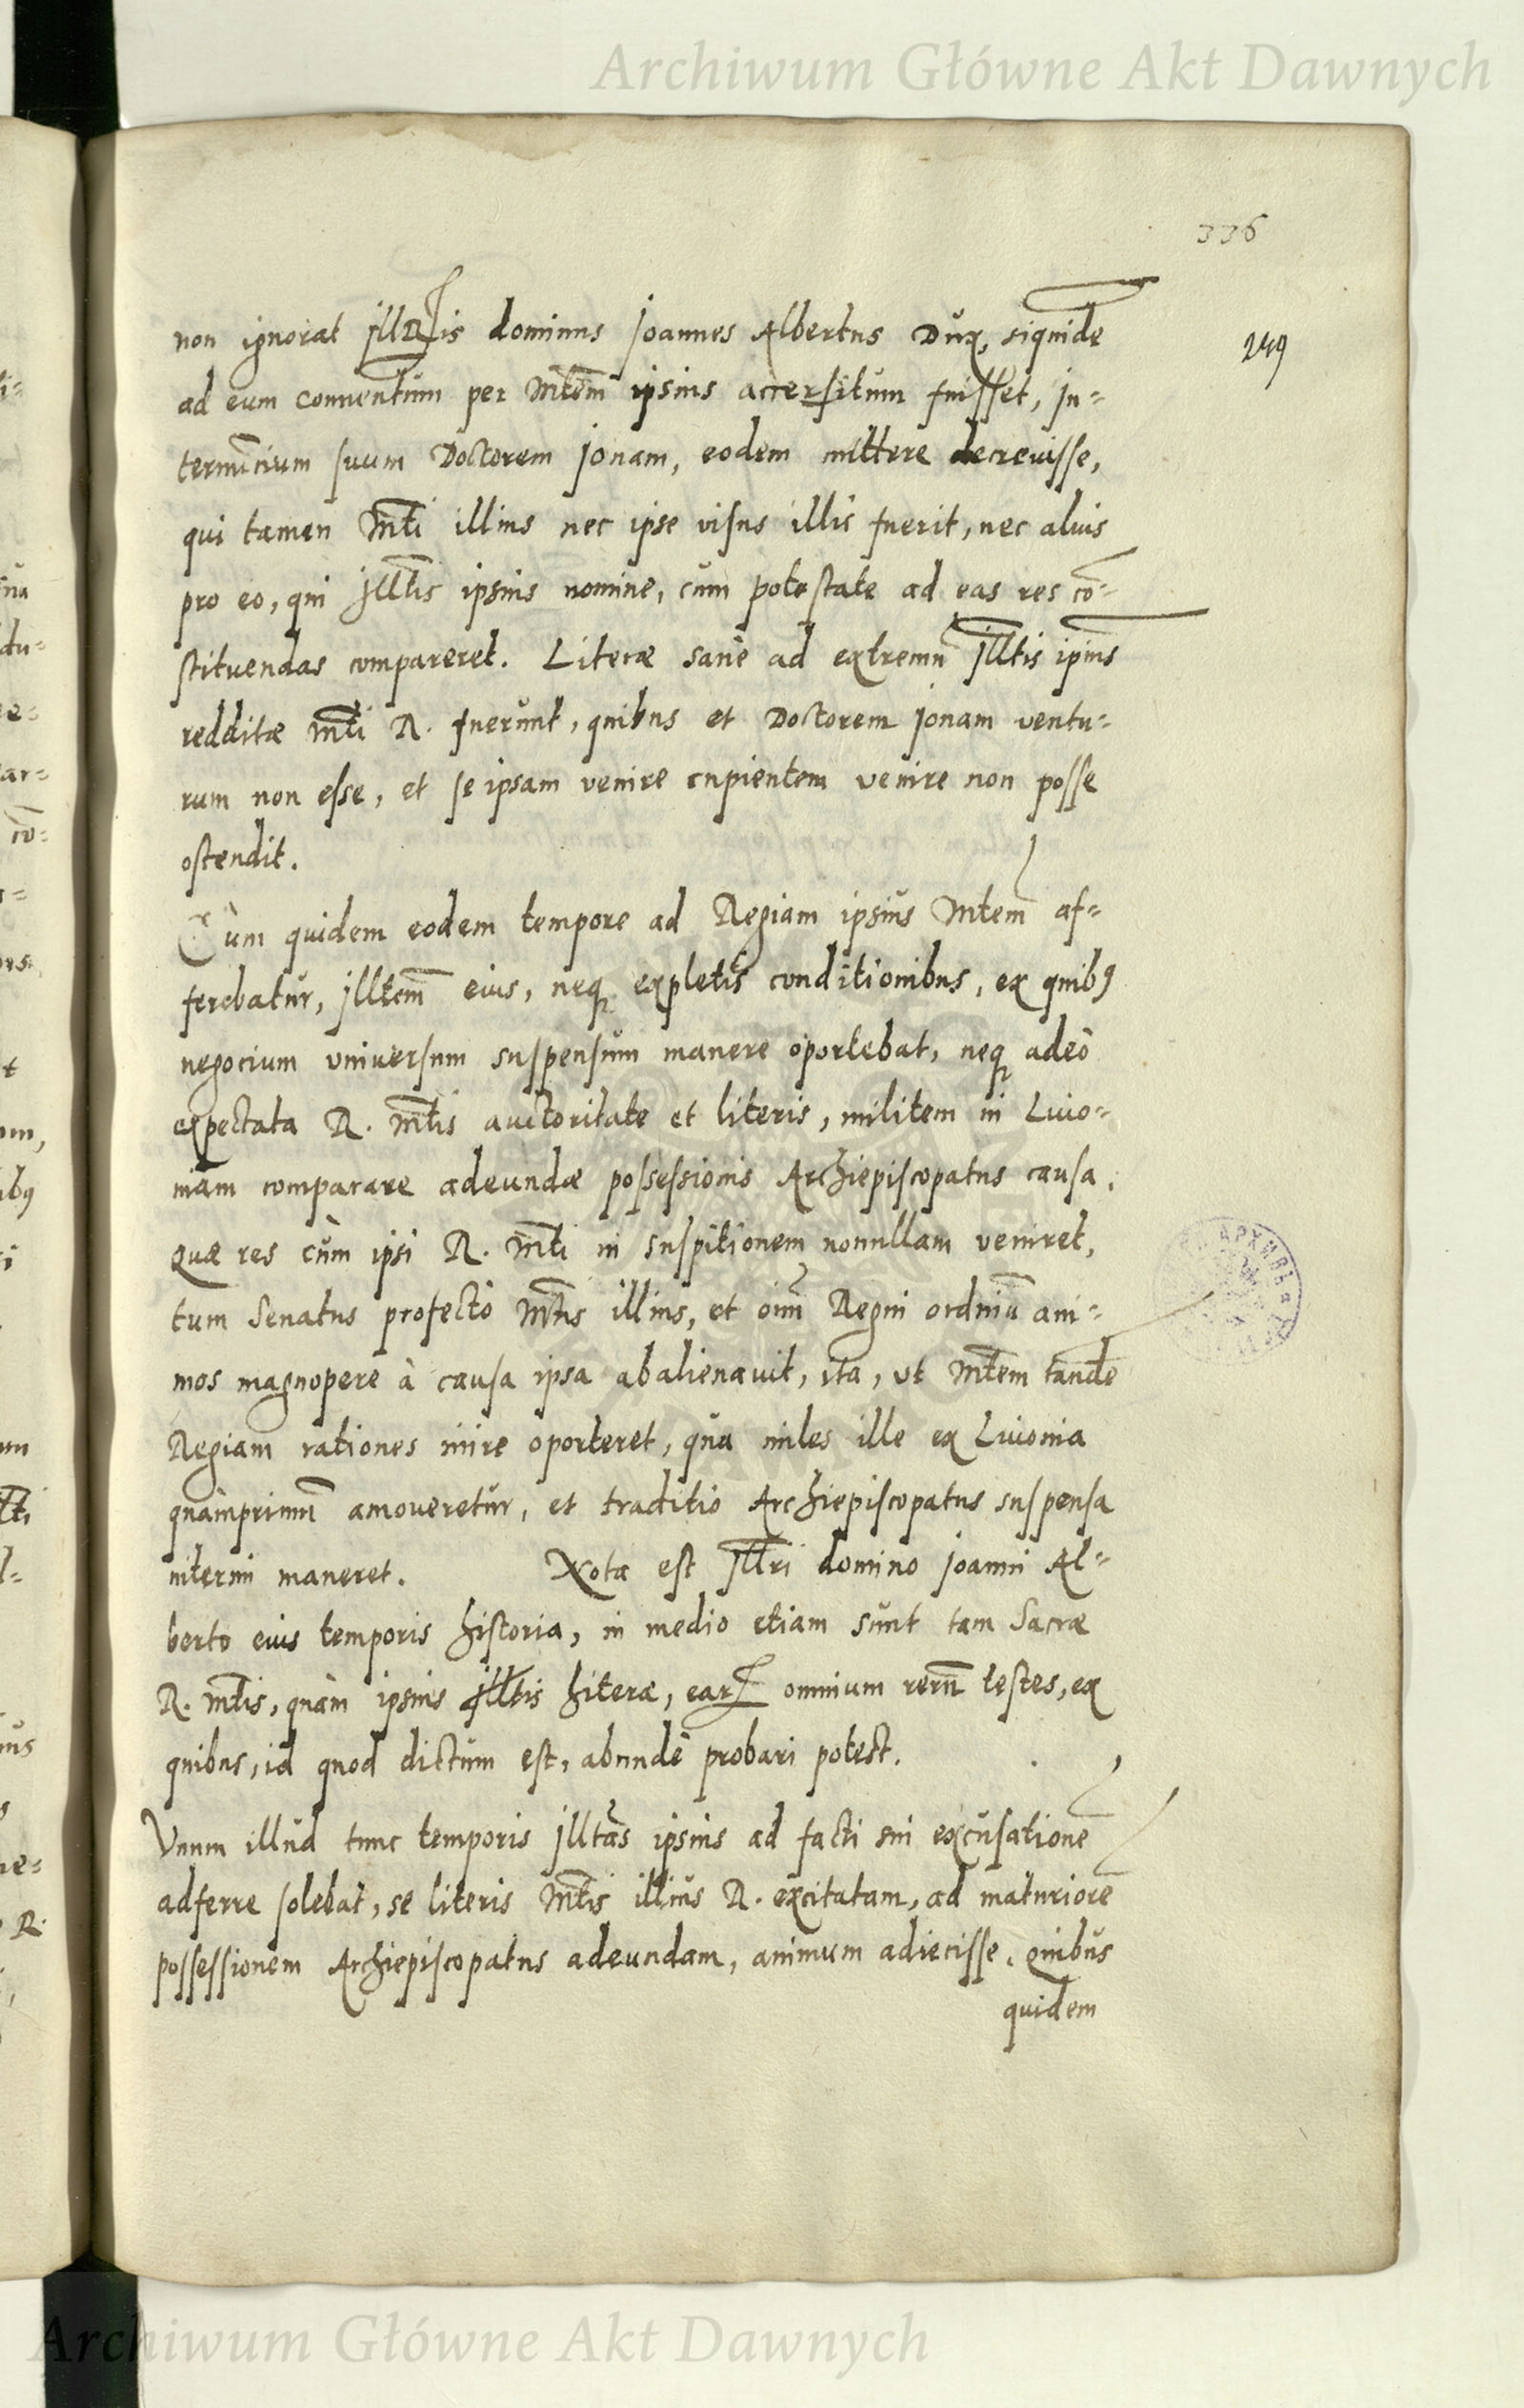 Archiwum Główne Akt Dawnych
336
249
non ignorat Illris dominus Joannes Albertus Dux, siquidē
ad eum conuentum per Mtēm ipsius accersitum fuisset, In-
ternūcium suum Doctorem Jonam, eodem mittere decreuisse,
qui tamen Mti illius nec ipse visus illic fuerit, nec alius
pro eo, qui Illtis ipsius nomine, cum potestate ad eas res cō-
stituendas compareret. Literæ sanè ad extremū Illtis ipius
redditæ Mti R. fuerunt, quibus et Doctorem Jonam ventu-
rum non esse, et se ipsam venire cupientem venire non posse
ostendit.
Cùm quidem eodem tempore ad Regiam ipsius Mtem af-
ferebatur, Illtem eius, neq expletis conditionibus, ex quibꝰ
negocium vniuersum suspensum manere oportebat, neq adeò
expectata R. Mtis auctoritate et literis, militem in Liuo-
niam comparare adeundæ possessionis Archiepiscopatus causa.
Quæ res cùm ipsi R. Mti in suspitionem nonnullam veniret,
tum Senatus profectò Mtis illius, et oīm Regni ordinū ani-
mos magnopere à causa ipsa abalienauit, ita, ut Mtem tandē
Regiam rationes inire oporteret, qua miles ille ex Liuonia
quàmprimū amoueretur, et traditio Archiepiscopatus suspensa
interim maneret. Nota est Illri domino Joanni Al-
berto eius temporis historia, in medio etiam sunt tam Sacræ
R. Mtis, quàm ipsius Illtis literæ, earꝝ omnium rerū testes, ex
quibus, id quod dictum est, abundè probari potest.
Vnum illud tunc temporis Illtas ipsius ad facti sui excusationē
adferre solebat, se literis Mtis illius R. excitatam, ad maturiorē
possessionem Archiepiscopatus adeundam, animum adiecisse. Quibus
quidem
Archiwum Główne Akt Dawnych